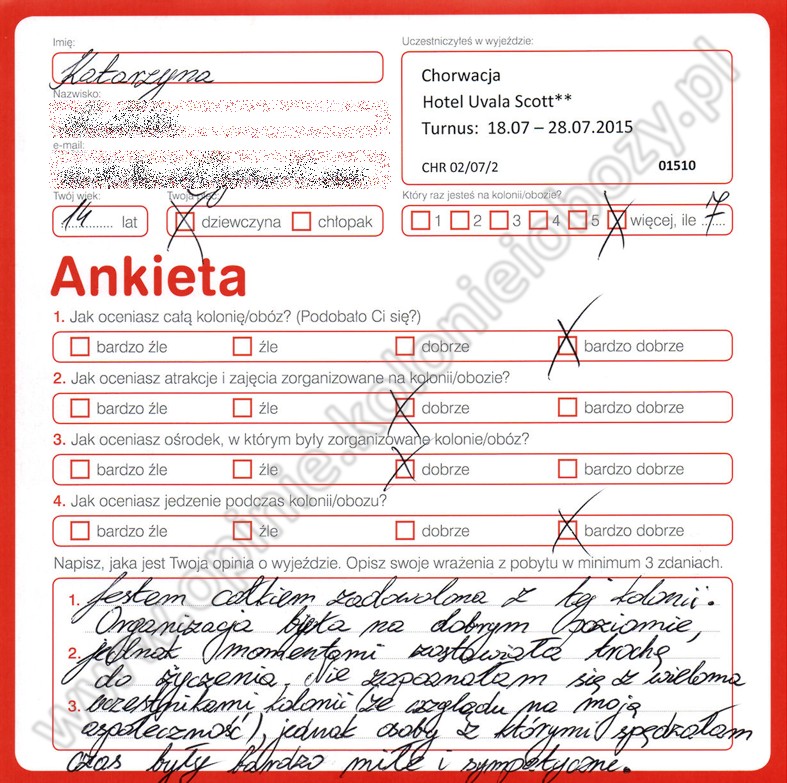 Imię:
Katarzyna
Nazwisko:
e-mail:
Twój wiek:
14 lat
Twoja
dziewczyna chłopak
Uczestniczyłeś w wyjeździe:
Chorwacja
Hotel Uvala Scott**
Turnus: 18.07 – 28.07.2015
CHR 02/07/2 01510
Który raz jesteś na kolonii/obozie?
1 2 3 4 5 więcej, ile 7
Ankieta
1. Jak oceniasz całą kolonię/obóz? (Podobało Ci się?)
bardzo źle źle dobrze bardzo dobrze
2. Jak oceniasz atrakcje i zajęcia zorganizowane na kolonii/obozie?
bardzo źle źle dobrze bardzo dobrze
3. Jak oceniasz ośrodek, w którym były zorganizowane kolonie/obóz?
bardzo źle źle dobrze bardzo dobrze
4. Jak oceniasz jedzenie podczas kolonii/obozu?
bardzo źle źle dobrze bardzo dobrze
Napisz, jaka jest Twoja opinia o wyjeździe. Opisz swoje wrażenia z pobytu w minimum 3 zdaniach.
1. Jestem całkiem zadowolona z tej kolonii.
Organizacja była na dobrym poziomie,
2. jednak momentami zostawiała trochę
do życzenia. Nie zapoznałam się z wieloma
3. uczestnikami kolonii (ze względu na moją
aspołeczność), jednak osoby z którymi spędzałam
czas były bardzo miłe i sympatyczne.
www.opinie.kolonieiobozy.pl